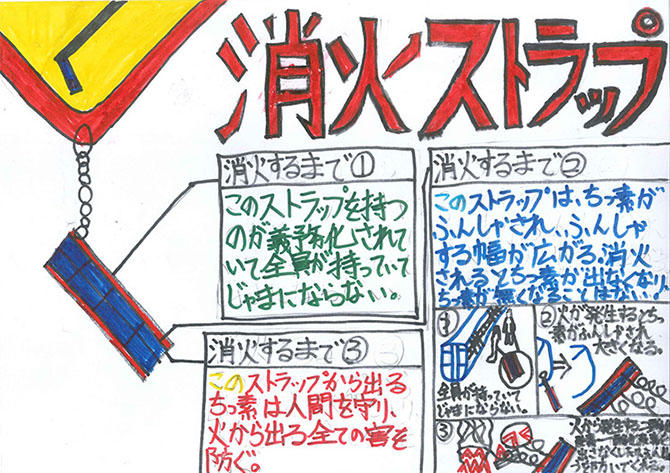 消火ストラップ
消火するまで①
このストラップを持つ
のが義務化されて
いて全員が持っていて
じゃまにならない。
消火するまで②
このストラップは、ちっ素が
ふんしゃされ、、ふんしゃ
する幅が広がる。消火
されるとちっ素が出なくなり、
ちっ素が無くなることはない。
消火するまで③
このストラップから出る
ちっ素は人間を守り、
火から出る全ての害を
防ぐ。
①
全員が持っていて
じゃまにならない。
②火が発生するとちっ
素がふんしゃされ
大きくなる。
③
火から発生する